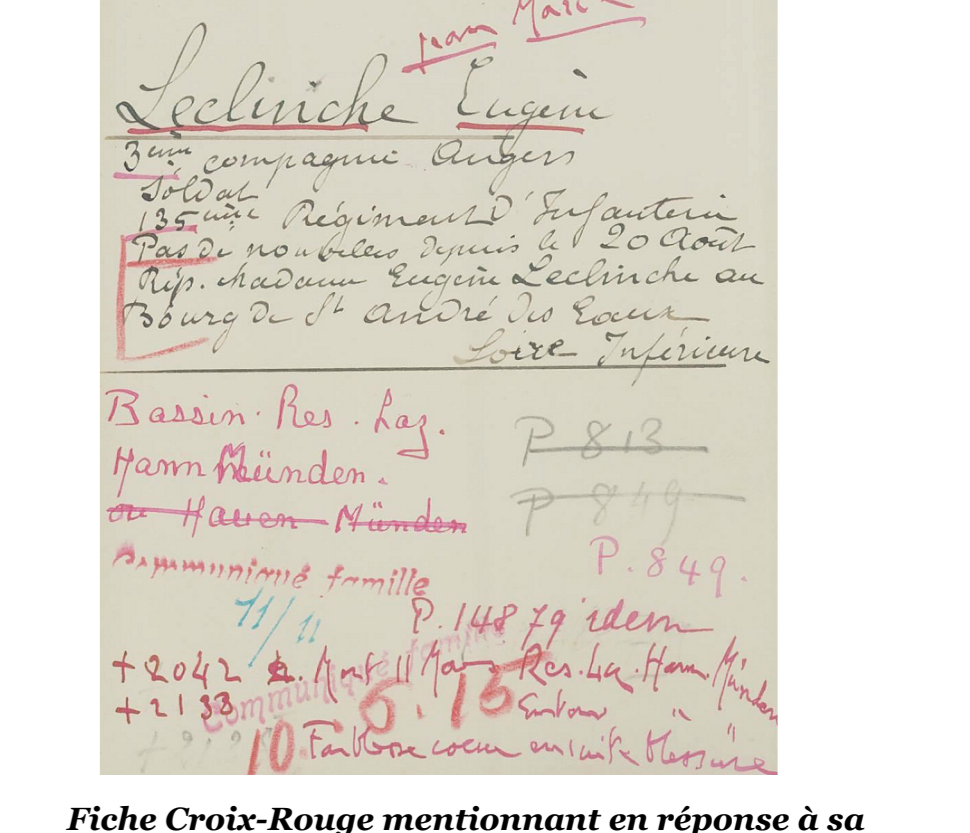 Jean Marie
Leclinche Eugène
3ème compagnie Angers
Soldat
135ème Régiment d'Infanterie
Pas de nouvelles depuis le 20 Août
Rép. Madame Eugène Leclinche au
Bourg de St André des Eaux
Loire Inférieure
Bassin. Res. Laz.
Hann Münden.
ou Hauen Münden
P 813
P 849
P. 849.
Communiqué famille
11/11
P. 14879 idem
+ 2042 Mort 11 Mars Res. Laz. Hann. Münden
Communiqué famille
+ 2133
10.6.15
" "
Faiblesse coeur ensuite blessure
Fiche Croix-Rouge mentionnant en réponse à sa